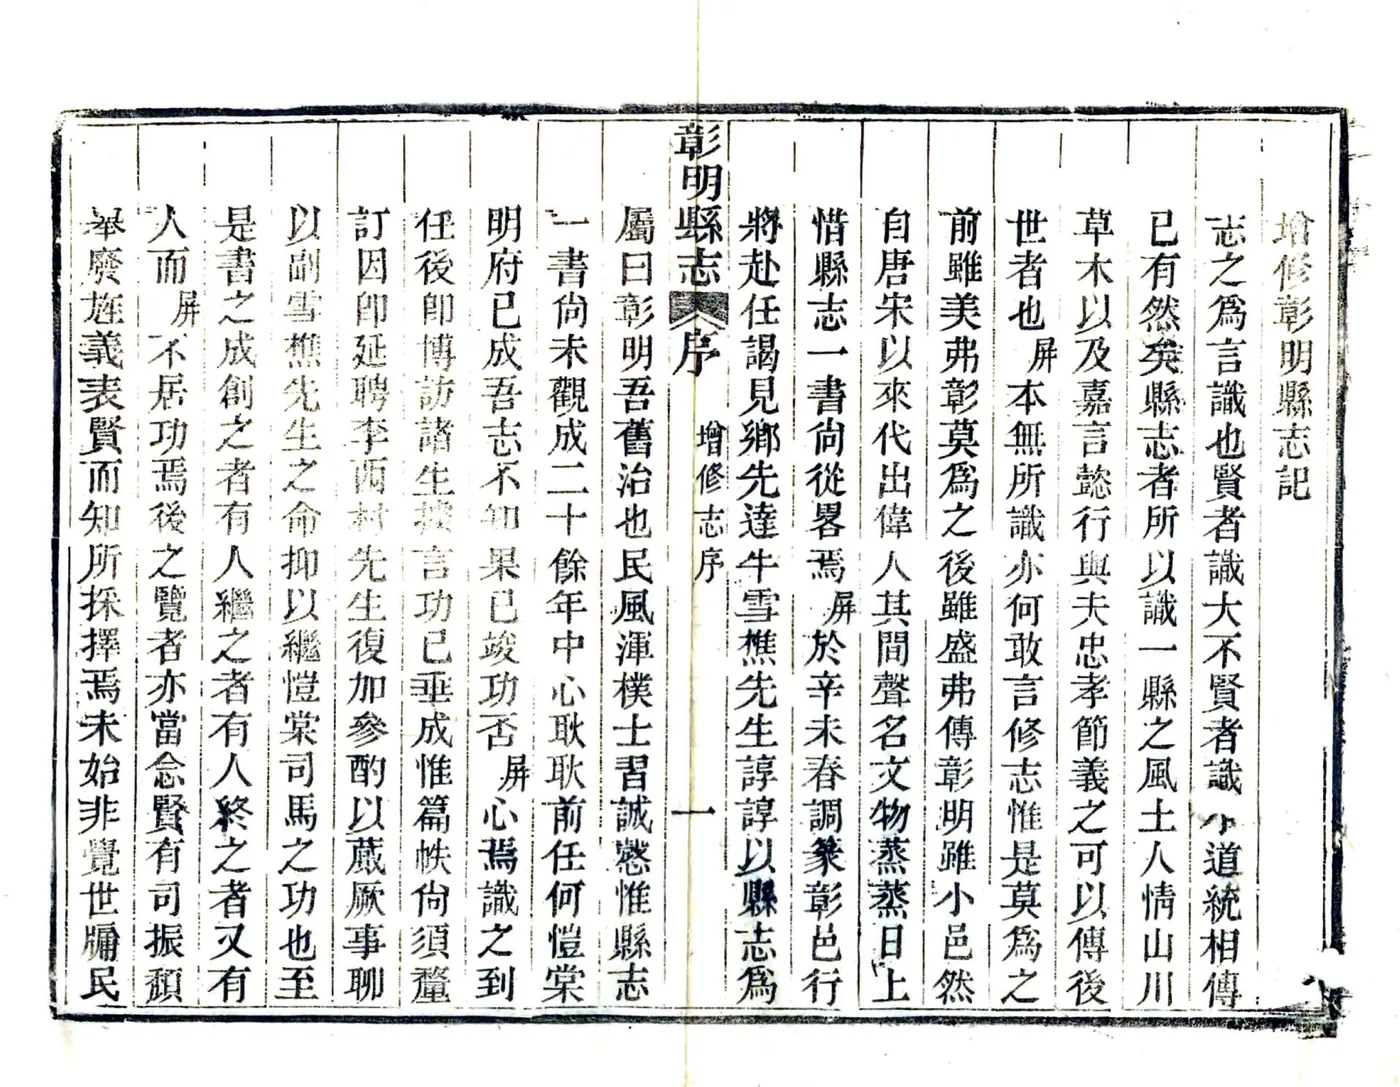 增修彰明縣志記
志之爲言識也賢者識大不賢者識小道統相傳
已有然矣縣志者所以識一縣之風土人情山川
草木以及嘉言懿行與夫忠孝節義之可以傳後
世者也屏本無所識亦何敢言修志惟是莫爲之
前雖美弗彰莫爲之後雖盛弗傳彰明雖小邑然
自唐宋以來代出偉人其間聲名文物蒸蒸日上
惜縣志一書尙從畧焉屏於辛未春調篆彰邑行
將赴任謁見鄉先達牛雪樵先生諄諄以縣志爲
彰明縣志 序 增修志序 一
屬曰彰明吾舊治也民風渾樸士習誠慤惟縣志
一書尙未觀成二十餘年中心耿耿前任何愷棠
明府已成吾志不知果已竣功否屏心焉識之到
任後卽博訪諸生據言功已垂成惟篇帙尙須釐
訂因卽延聘李西村先生復加參酌以蕆厥事聊
以副雪樵先生之命抑以繼愷棠司馬之功也至
是書之成創之者有人繼之者有人終之者又有
人而屏不居功焉後之覽者亦當念賢有司振頽
舉廢旌義表賢而知所採擇焉未始非覺世牖民